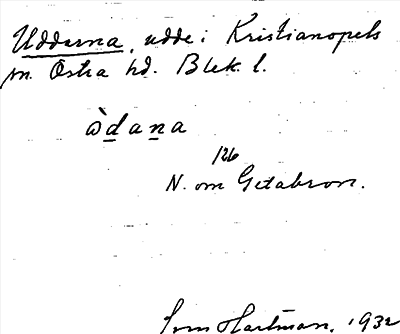 Uddarna, udde i Kristianopels
sn. Östra hd. Blek. l.
òdana
126
N. om Getabron.
Sven Hartman, 1932